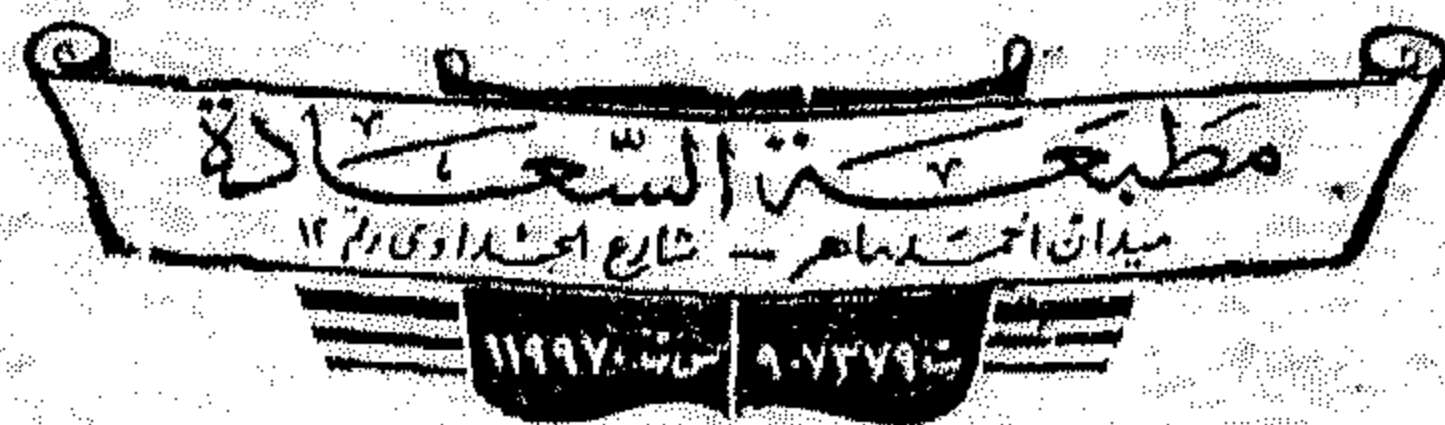 مطبعة السّعادة
ميدان أحمد ماهر — شارع الجداوى رقم ١٢
ت ٩٠٧٣٧٩ س.ت ١١٩٩٧